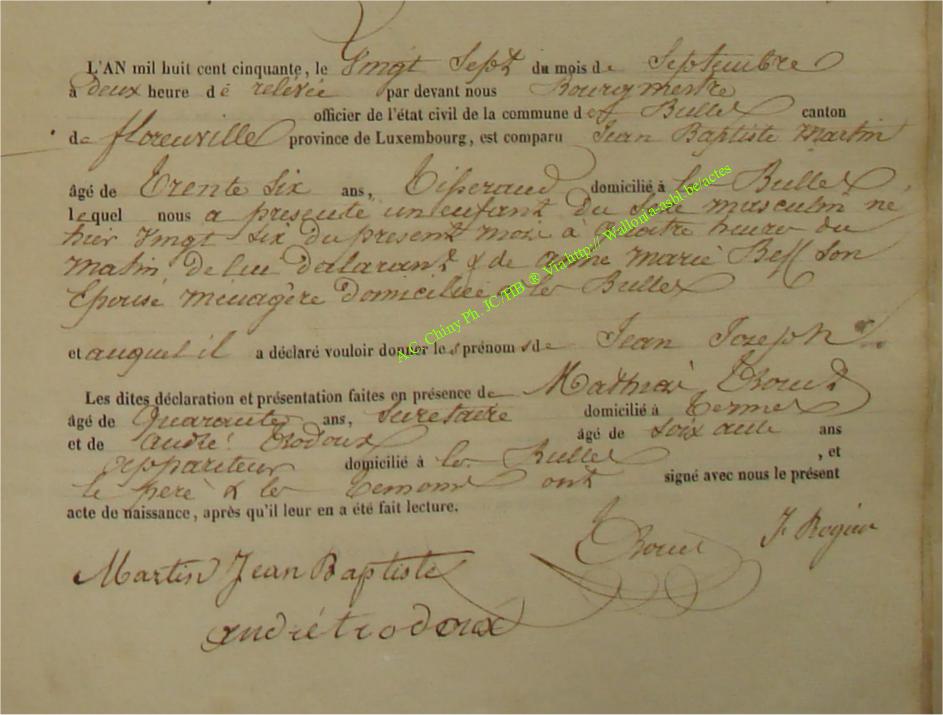 L'AN mil huit cent cinquante, le Vingt Sept du mois de Septembre
à deux heure de relévée par devant nous Bourgmestre
officier de l'état civil de la commune de Bulles canton
de florenville province de Luxembourg, est comparu Jean Baptiste Martin
âgé de Trente Six ans, Tisserand domicilié à les Bulles
lequel nous a presenté un enfant du Sexe masculin né
hier Vingt Six du present mois à quatre heure du
matin de lui déclarant & de anne marie Son
Epouse ménagère domiciliée a les Bulles
et auquel il a déclaré vouloir donner les prénoms de Jean Joseph
Les dites déclaration et présentation faites en présence de Mathieu
âgé de Quarante ans, Secretaire domicilié à Termes
et de André Trodoux âgé de Soixante ans
appariteur domicilié à les Bulles, et
le père & les temoins ont signé avec nous le présent
acte de naissance, après qu'il leur en a été fait lecture.
J Rogier
Martin Jean Baptiste
andré trodoux
A.C. Chiny Ph. JC/HB ® Via http:// Wallonia-asbl.be/actes